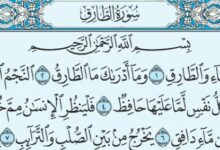 سُورَةُ الطَّارِقِ
بِسْمِ ٱللَّهِ ٱلرَّحْمَٰنِ ٱلرَّحِيمِ
َاءِ وَٱلطَّارِقِ ١ وَمَآ أَدْرَىٰكَ مَا ٱلطَّارِقُ ٢ ٱلنَّجْمُ
نَفْسٍ لَّمَّا عَلَيْهَا حَافِظٌ ٤ فَلْيَنظُرِ ٱلْإِنسَٰنُ مِمَّ
مَّآءٍ دَافِقٍ ٦ يَخْرُجُ مِنۢ بَيْنِ ٱلصُّلْبِ وَٱلتَّرَآئِبِ ٧